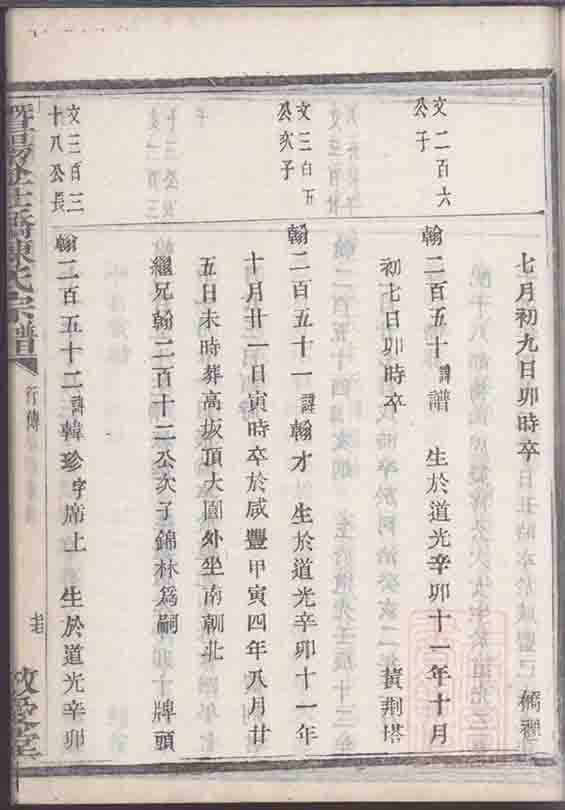 七月初九日卯時卒
文二百六公子
翰二百五十諱譜 生於道光辛卯十一年十月
初七日卯時卒 黄荆塔
文三百五公次子
翰二百五十一諱翰才 生於道光辛卯十一年
十月廿一日寅時卒於咸豐甲寅四年八月廿
五日未時葬高坂頂大園外坐南朝北
繼兄翰二百十二公次子錦林爲嗣 牌頭
文三百三十八公長
翰二百五十二諱韓珍字席上 生於道光辛卯
暨陽 陳氏宗譜 行傳